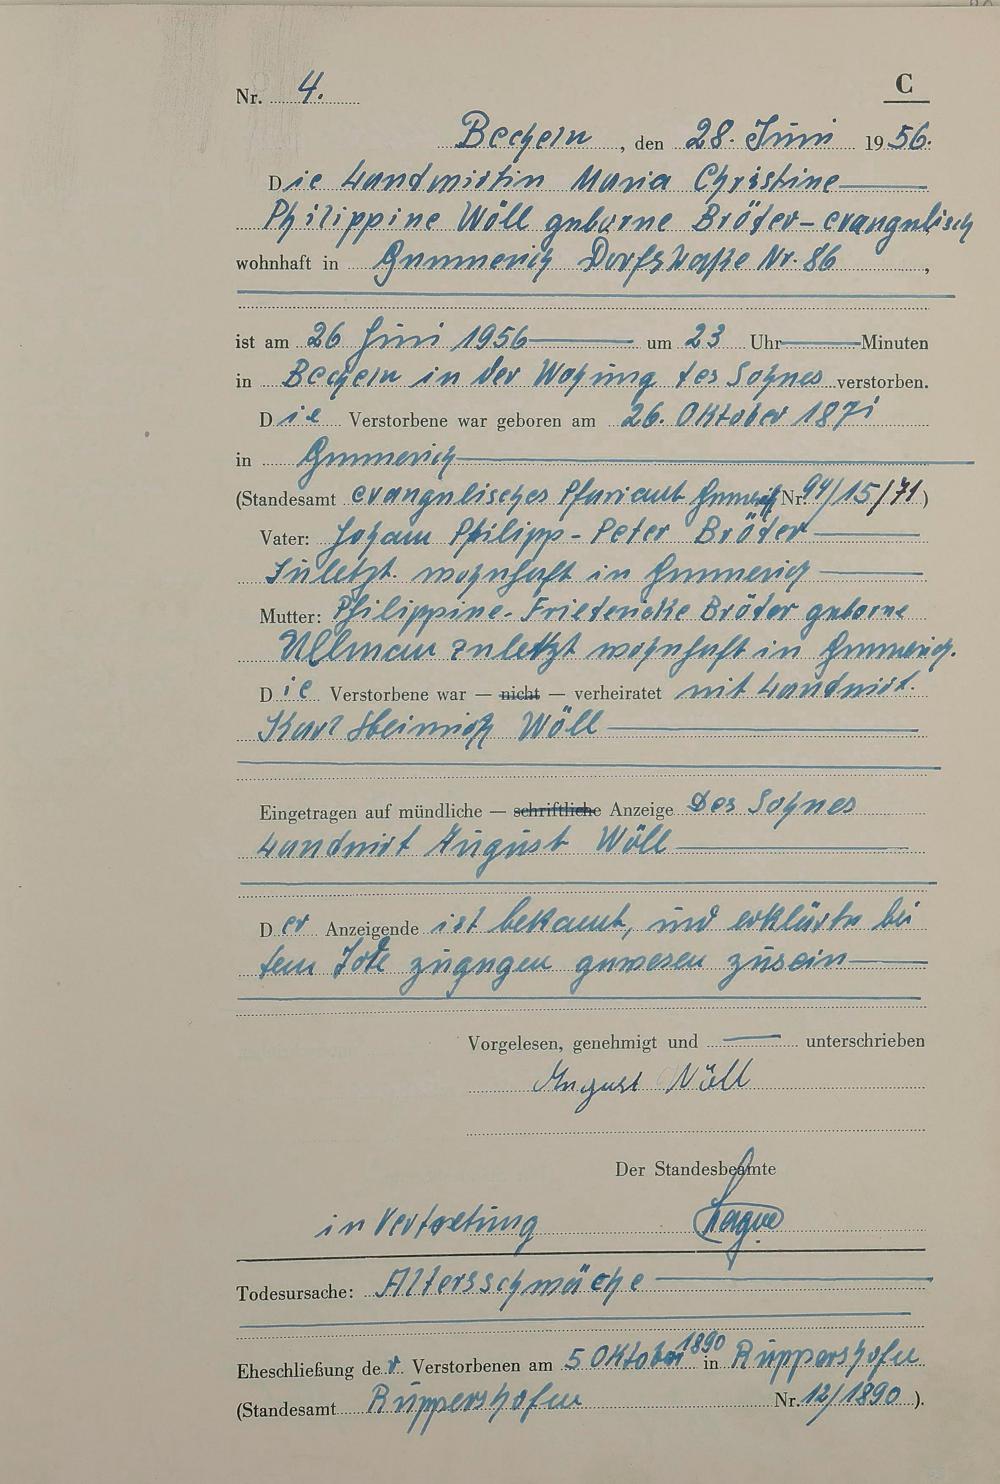 C
Nr. 4.
Becheln, den 28. Juni 1956.
Die Landwirtin Maria Christine
Philippine Wöll geborne Bröder - evangelisch
wohnhaft in Gemmerich Dorfstraße Nr. 86,
ist am 26 Juni 1956 um 23 Uhr Minuten
in Becheln in der Wohung des Sohnes verstorben.
Die Verstorbene war geboren am 26. Oktober 1871
in Gemmerich
(Standesamt evangelisches Pfarramt Gemmerich Nr. 94/15/71)
Vater: Johann Philipp-Peter Bröder
Zuletzt wohnhaft in Gemmerich
Mutter: Philippine-Friedericke Bröder geborne
Ullmann zuletzt wohnhaft in Gemmerich.
Die Verstorbene war — nicht — verheiratet mit Landwirt.
Karl Heinrich Wöll
Eingetragen auf mündliche — schriftliche Anzeige des Sohnes
Landwirt August Wöll
Der Anzeigende ist bekannt, und erklärte bei
dem Tode zugegen gewesen zusein
Vorgelesen, genehmigt und unterschrieben
August Wöll
Der Standesbeamte
in Vertretung
Todesursache: Altersschwäche
Eheschließung der Verstorbenen am 5 Oktober 1890 in Ruppershofen
(Standesamt Ruppershofen Nr. 12/1890).